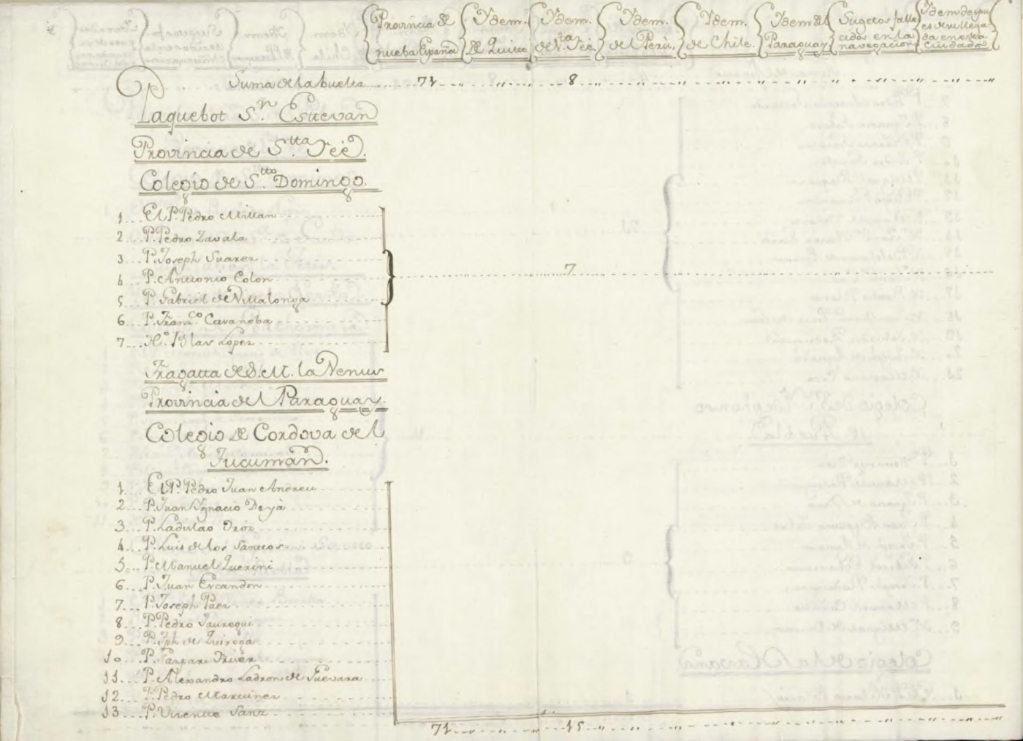 Provincia de nueba España
Ydem. de Quito
Ydem. de N. Sta. Feé.
Ydem. de Perú.
Ydem. de Chile.
Ydem del Paraguay
Sugetos falle cidos en la navegacion
Ydem despu es en la Ciudad
Suma de la buelta 71 8
Paquebot Sn. Estevan
Provincia de Stta. Feé.
Colegio de Sto. Domingo.
1. El P. Pedro Millan
2. P. Pedro Zavala
3. P. Joseph Suarez
4. P. Antonio Colon
5. P. Gabriel de Villalonga
7
6. P. Franco.
7. Ho. Blas Lopez
Fragatta de S. M. la Venus
Provincia del Paraguay
Colegio de Cordova del
Tucumán.
1. El P. Pedro Juan Andreu
2. P. Juan Ygnacio Deyá
3. P. Ladislao Oroz
4. P. Luis de los Santos
5. P. Manuel Querini
6. P. Juan Escandon
7. P. Joseph Paez
8. P. Pedro Jauregui
9. P. Jph de Quiroga
10. P. Gaspar
11. P. Alexandro Ladron de Guevara
12. P. Pedro Martinez
13. P. Vicente Sanz
71 15